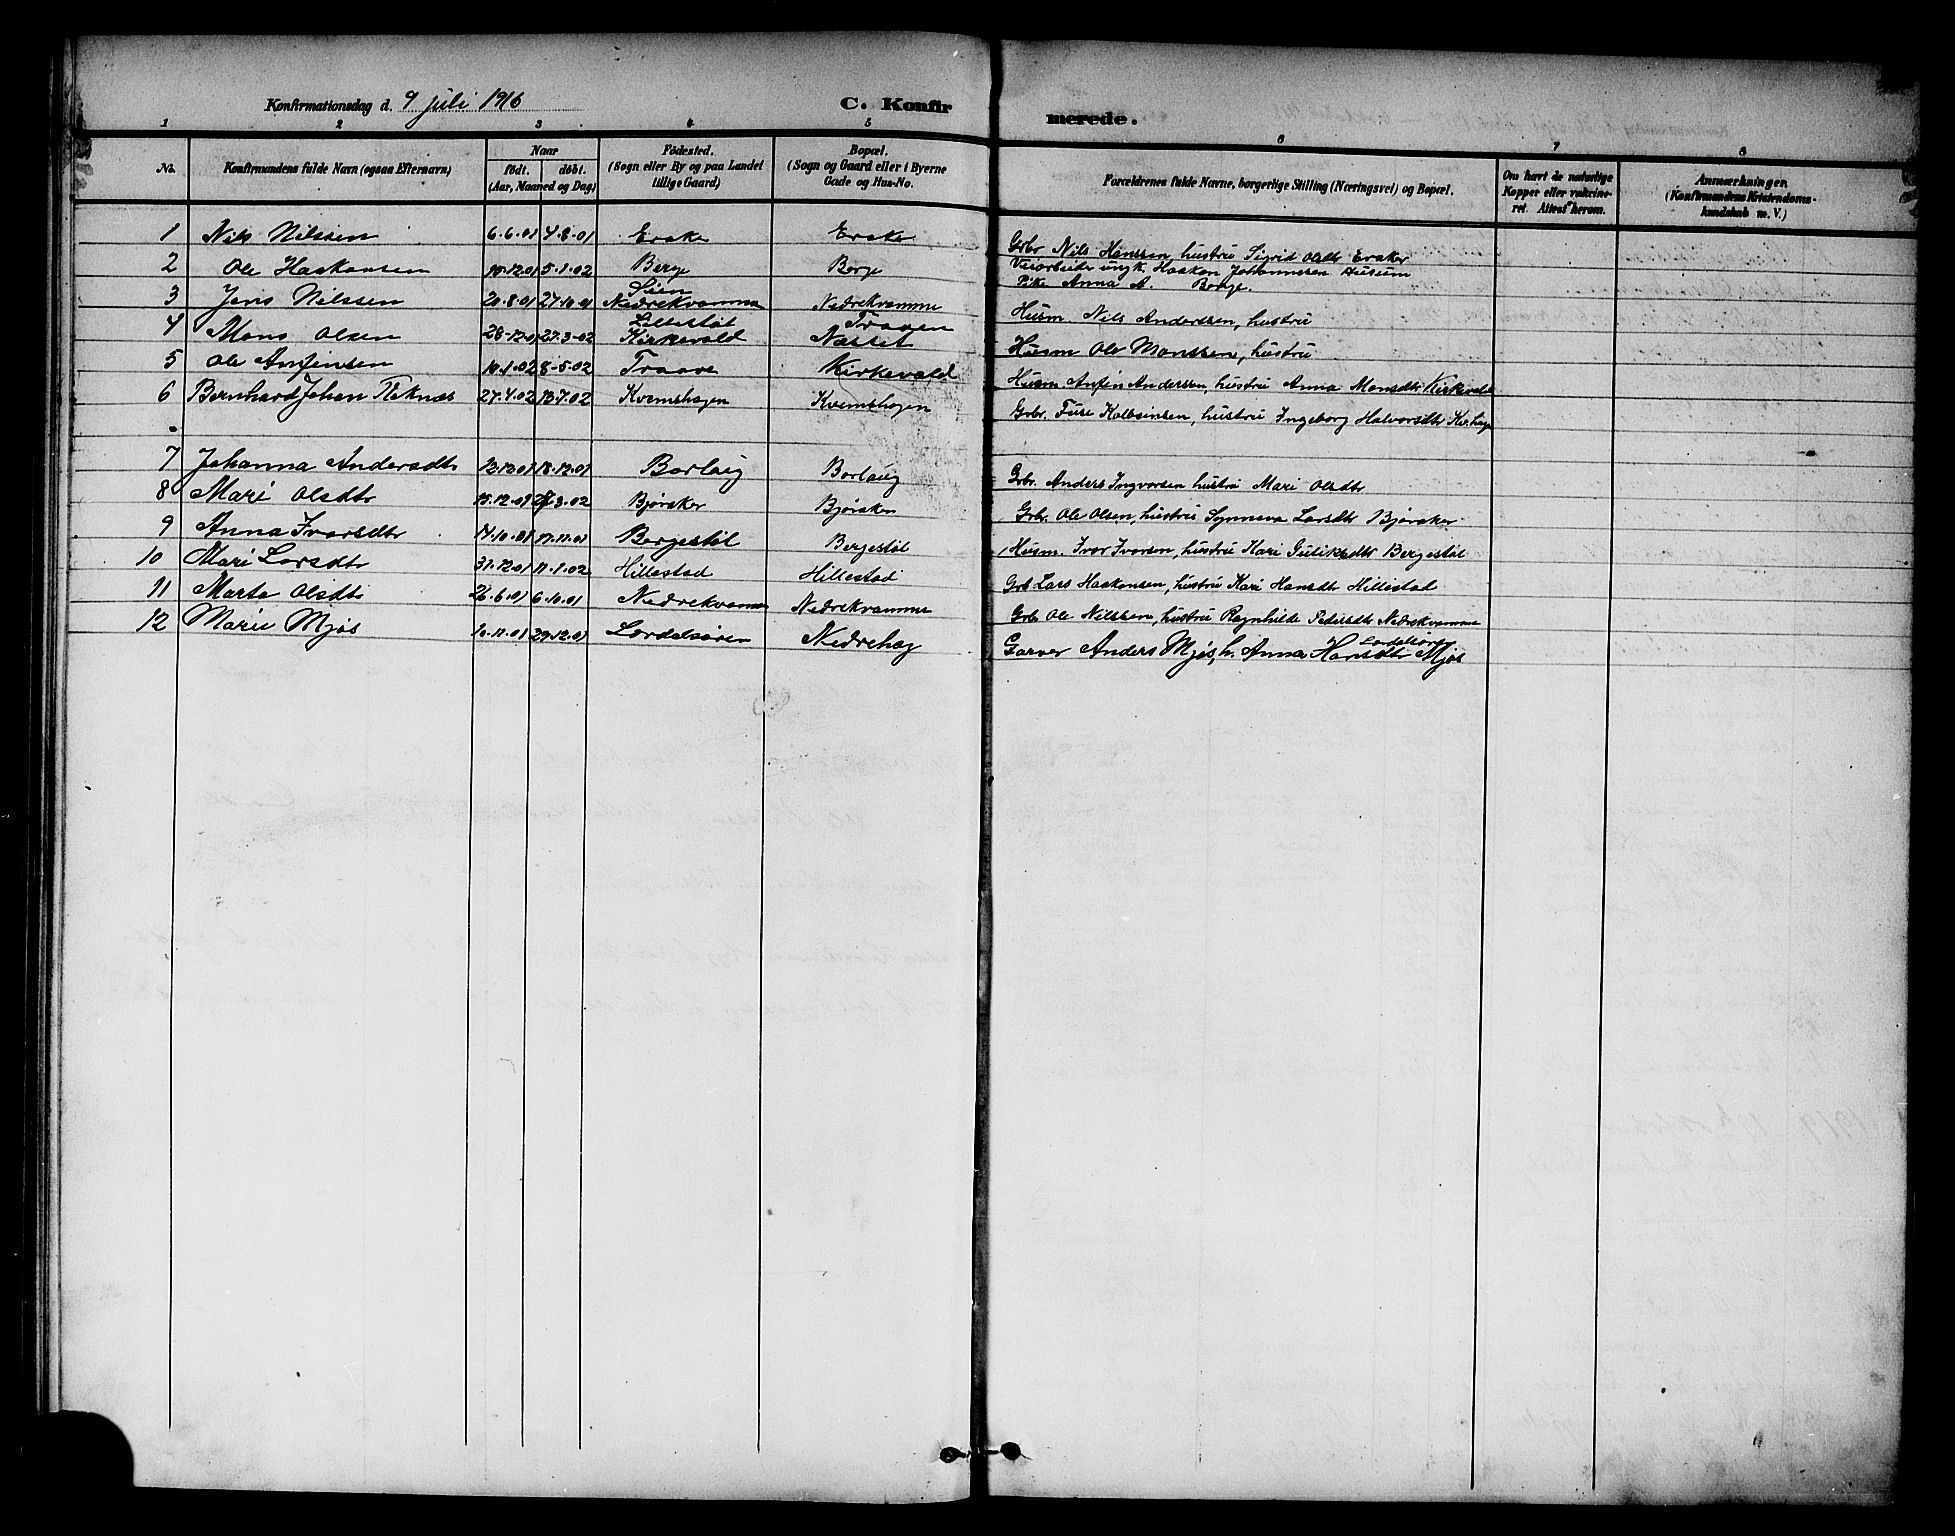 Konfirmationsdag d. 9 juli 1916
C. Konfirmerede.
1 2 3 4 5 6 7 8
No. Konfirmandens fulde Navn (ogsaa Efternavn) Naar födt. döbt. (Aar, Maaned og Dag) Födested. (Sogn eller By og paa Landet tillige Gaard) Bopæl. (Sogn og Gaard eller i Byerne Gade og Hus-No. Forældrenes fulde Navne, borgerlige Stilling (Næringsvei) og Bopæl. Om havt de naturlige Kopper eller vaccineret. Attest herom. Anmærkninger. (Konfirmandens Kristendomskundskab m. V.)
1 Nils Nilssen 6.6.01 4.8.01 Erake Erake Grbr Nils Hanssen, hustru Sigrid Olsdtr Eraker
2 Ole Haakonsen 5.1.02 Berge Berge Veiarbeide ungk. Haakon Johannessen Husum
Pike Anna A. Berge.
3 Jens Nilssen 20.8.01 27.10.01 Nedrekvamme Nedrekvamme Husm Nils Anderssen, hustru
4 Mons Olsen 28.12.01 27.3.02 Lillestøl Kirkevold Traaen Næsset Husm Ole Monssen, hustru
5 Ole Anfinsen 10.1.02 8.5.02 Traave Kirkevold Husm. Anfin Andersen, hustru Anna Monsdtr Kirkevold
6 Bernhard Johan Teknæs 27.4.02 13.7.02 Kvemshagen Kvemshagen Grbr. Kolbeinsen, hustru Ingeborg Halvorsdtr Kv.hag
7 Johanna Andersdtr 18.12.01 Borlaug Borlaug Gbr. Anders Ingvarsen hustru Mari Olsdtr
8 Mari Olsdtr 3.02 Bjøraker Bjøraker Grbr. Ole Olsen, hustru Synneva Larsdtr Bjøraker
9 Anna Ivarsdtr 14.10.01 17.11.01 Bergestøl Bergestøl Husm. Ivar Ivarsen, hustru Kari Gulliksdtr Bergestøl
10 Mari Larsdtr 31.12.01 11.1.02 Hillestad Hillestad Grb Lars Haakonsen, hustru Kari Hansdtr Hillestad
11 Marta Olsdtr 26.6.01 6.10.01 Nedrekvamme Nedrekvamme Grb Ole Nilssen, hustru Ragnhilde Pedersdtr Nedrekvamme
12 Marie Mjøs 29.12.01 Lærdalsøren Nedrehag Garver Anders Mjøs, h. Anna Hansdtr Mjøs